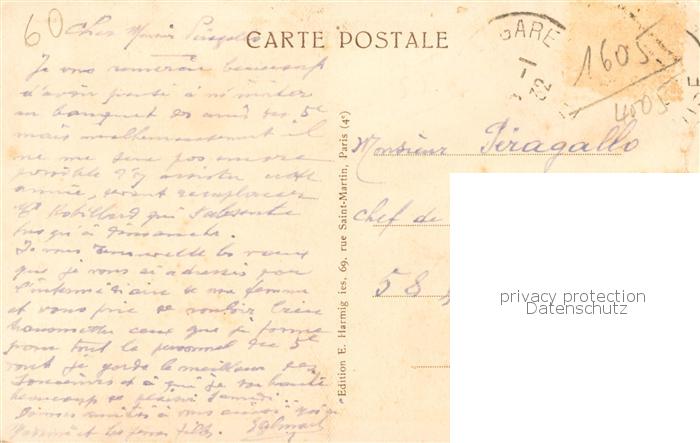 60
Cher Monsieur Peragallo
CARTE POSTALE
GARE
1605
4005
Je vous remercie beaucoup
d'avoir pensé à m'inviter
au banquet des amis du 5e
mais malheureusement il
ne me sera pas encore
possible d'y assister cette
année, devant remplacer
Mr Robillard qui s'absente
jusqu'à dimanche.
Je vous renouvelle les vœux
que je vous ai adressés par
l'intermédiaire de ma femme
et vous prie de vouloir bien
transmettre ceux que je forme
pour tout le personnel du 5e
dont je garde le meilleur des
souvenirs et à qui je souhaite
beaucoup de plaisir samedi.
et les
Edition E. Harmignies, 69, rue Saint-Martin, Paris (4e)
Monsieur Peragallo
Chef de
58
privacy protection
Datenschutz